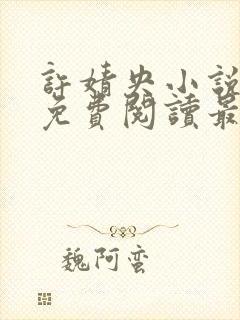 許婧央小說
免費閱讀最
魏阿蠻